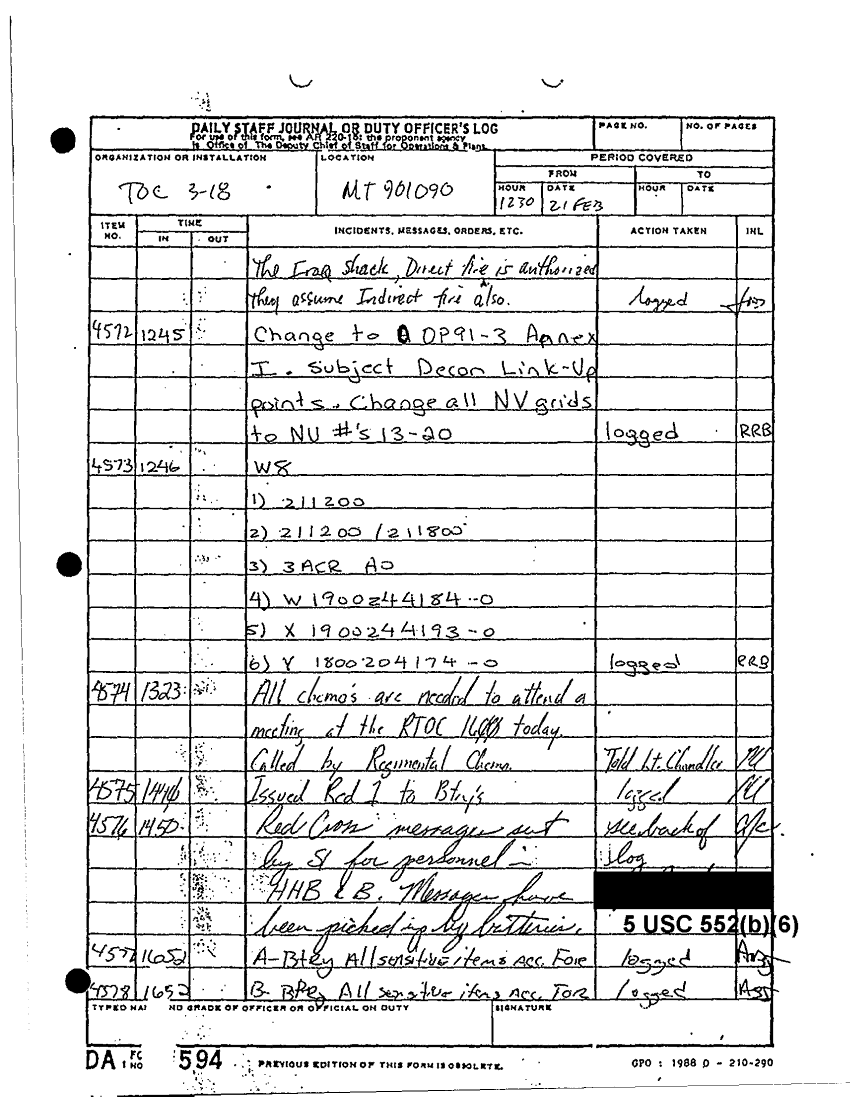 DAILY STAFF JOURNAL OR DUTY OFFICER'S LOG
For use of this form, see AR 220-15; the proponent agency
is Office of The Deputy Chief of Staff for Operations & Plans.
PAGE NO.
NO. OF PAGES
ORGANIZATION OR INSTALLATION
TOC 3-18
LOCATION
MT 901090
PERIOD COVERED
FROM TO
HOUR DATE HOUR DATE
1230 21 FEB
ITEM NO. TIME IN OUT INCIDENTS, MESSAGES, ORDERS, ETC. ACTION TAKEN INL
The Iraq Shack, Direct fire is authorized
they assume Indirect fire also. logged
4572 1245 Change to OP91-3 Annex
I. Subject Decon Link-Up
points. Change all NV grids
to NU #'s 13-20 logged RRB
4573 1246 W8
1) 211200
2) 211200 / 211800
3) 3 ACR AO
4) W 1900244184-0
5) X 1900244193-0
6) Y 1800204174-0 logged RRB
4574 1323 All chemo's are needed to attend a
meeting at the RTOC 1600 today.
Called by Regimental Chemo. Told Lt. Chandler
4575 Issued Red 1 to Btry's logged
4576 1450 Red Cross messages sent see back of
by S1 for personnel in log
HHB & B. Messages have
been picked up by batteries.
5 USC 552(b)(6)
4577 1652 A-Btry All sensitive items acc. For logged
4578 1652 B- Btry All sensitive items Acc. For logged
TYPED NA ND GRADE OF OFFICER OR OFFICIAL ON DUTY
SIGNATURE
DA FO NO 594 PREVIOUS EDITION OF THIS FORM IS OBSOLETE. GPO : 1988 O - 210-290